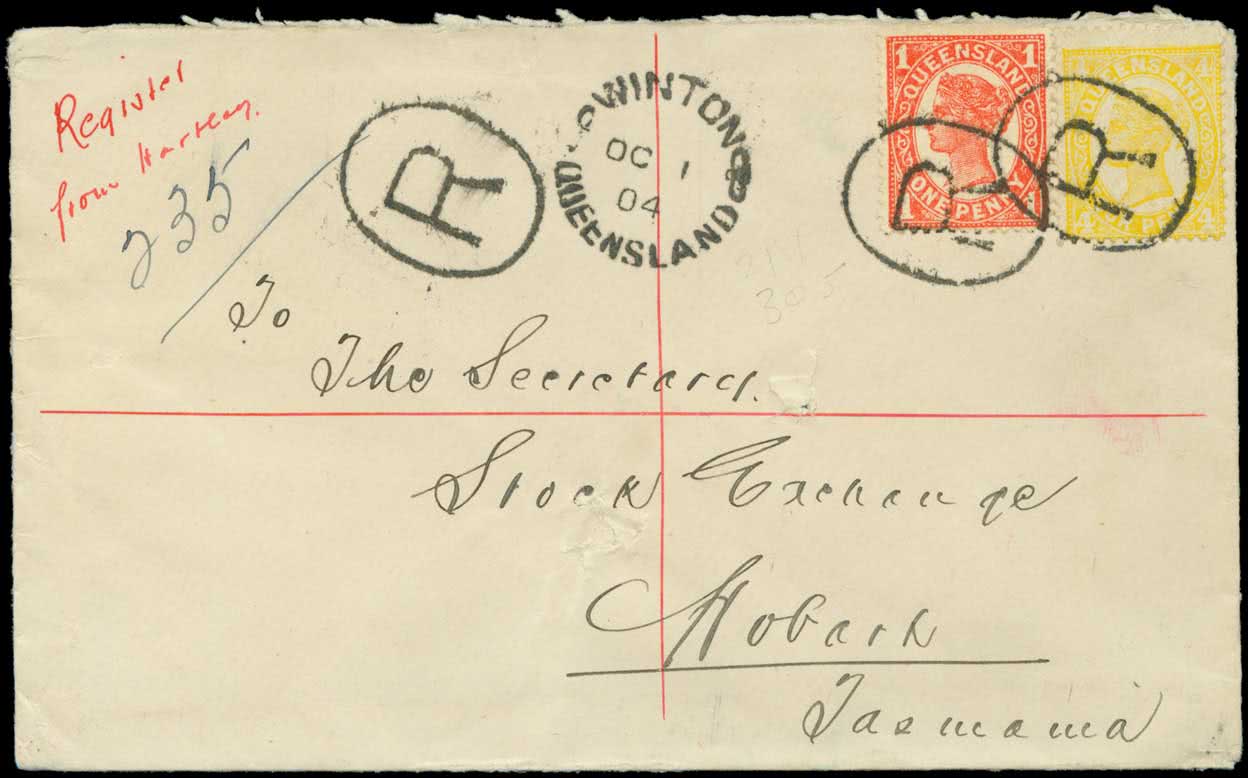 Register
from
235
R
WINTON
OC 1
04
QUEENSLAND
1 1
QUEENSLAND
ONE PENNY
1 1
R
4 4
QUEENSLAND
4 4
R
305
To
The Secretary.
Stock Exchange
Hobart
Tasmania